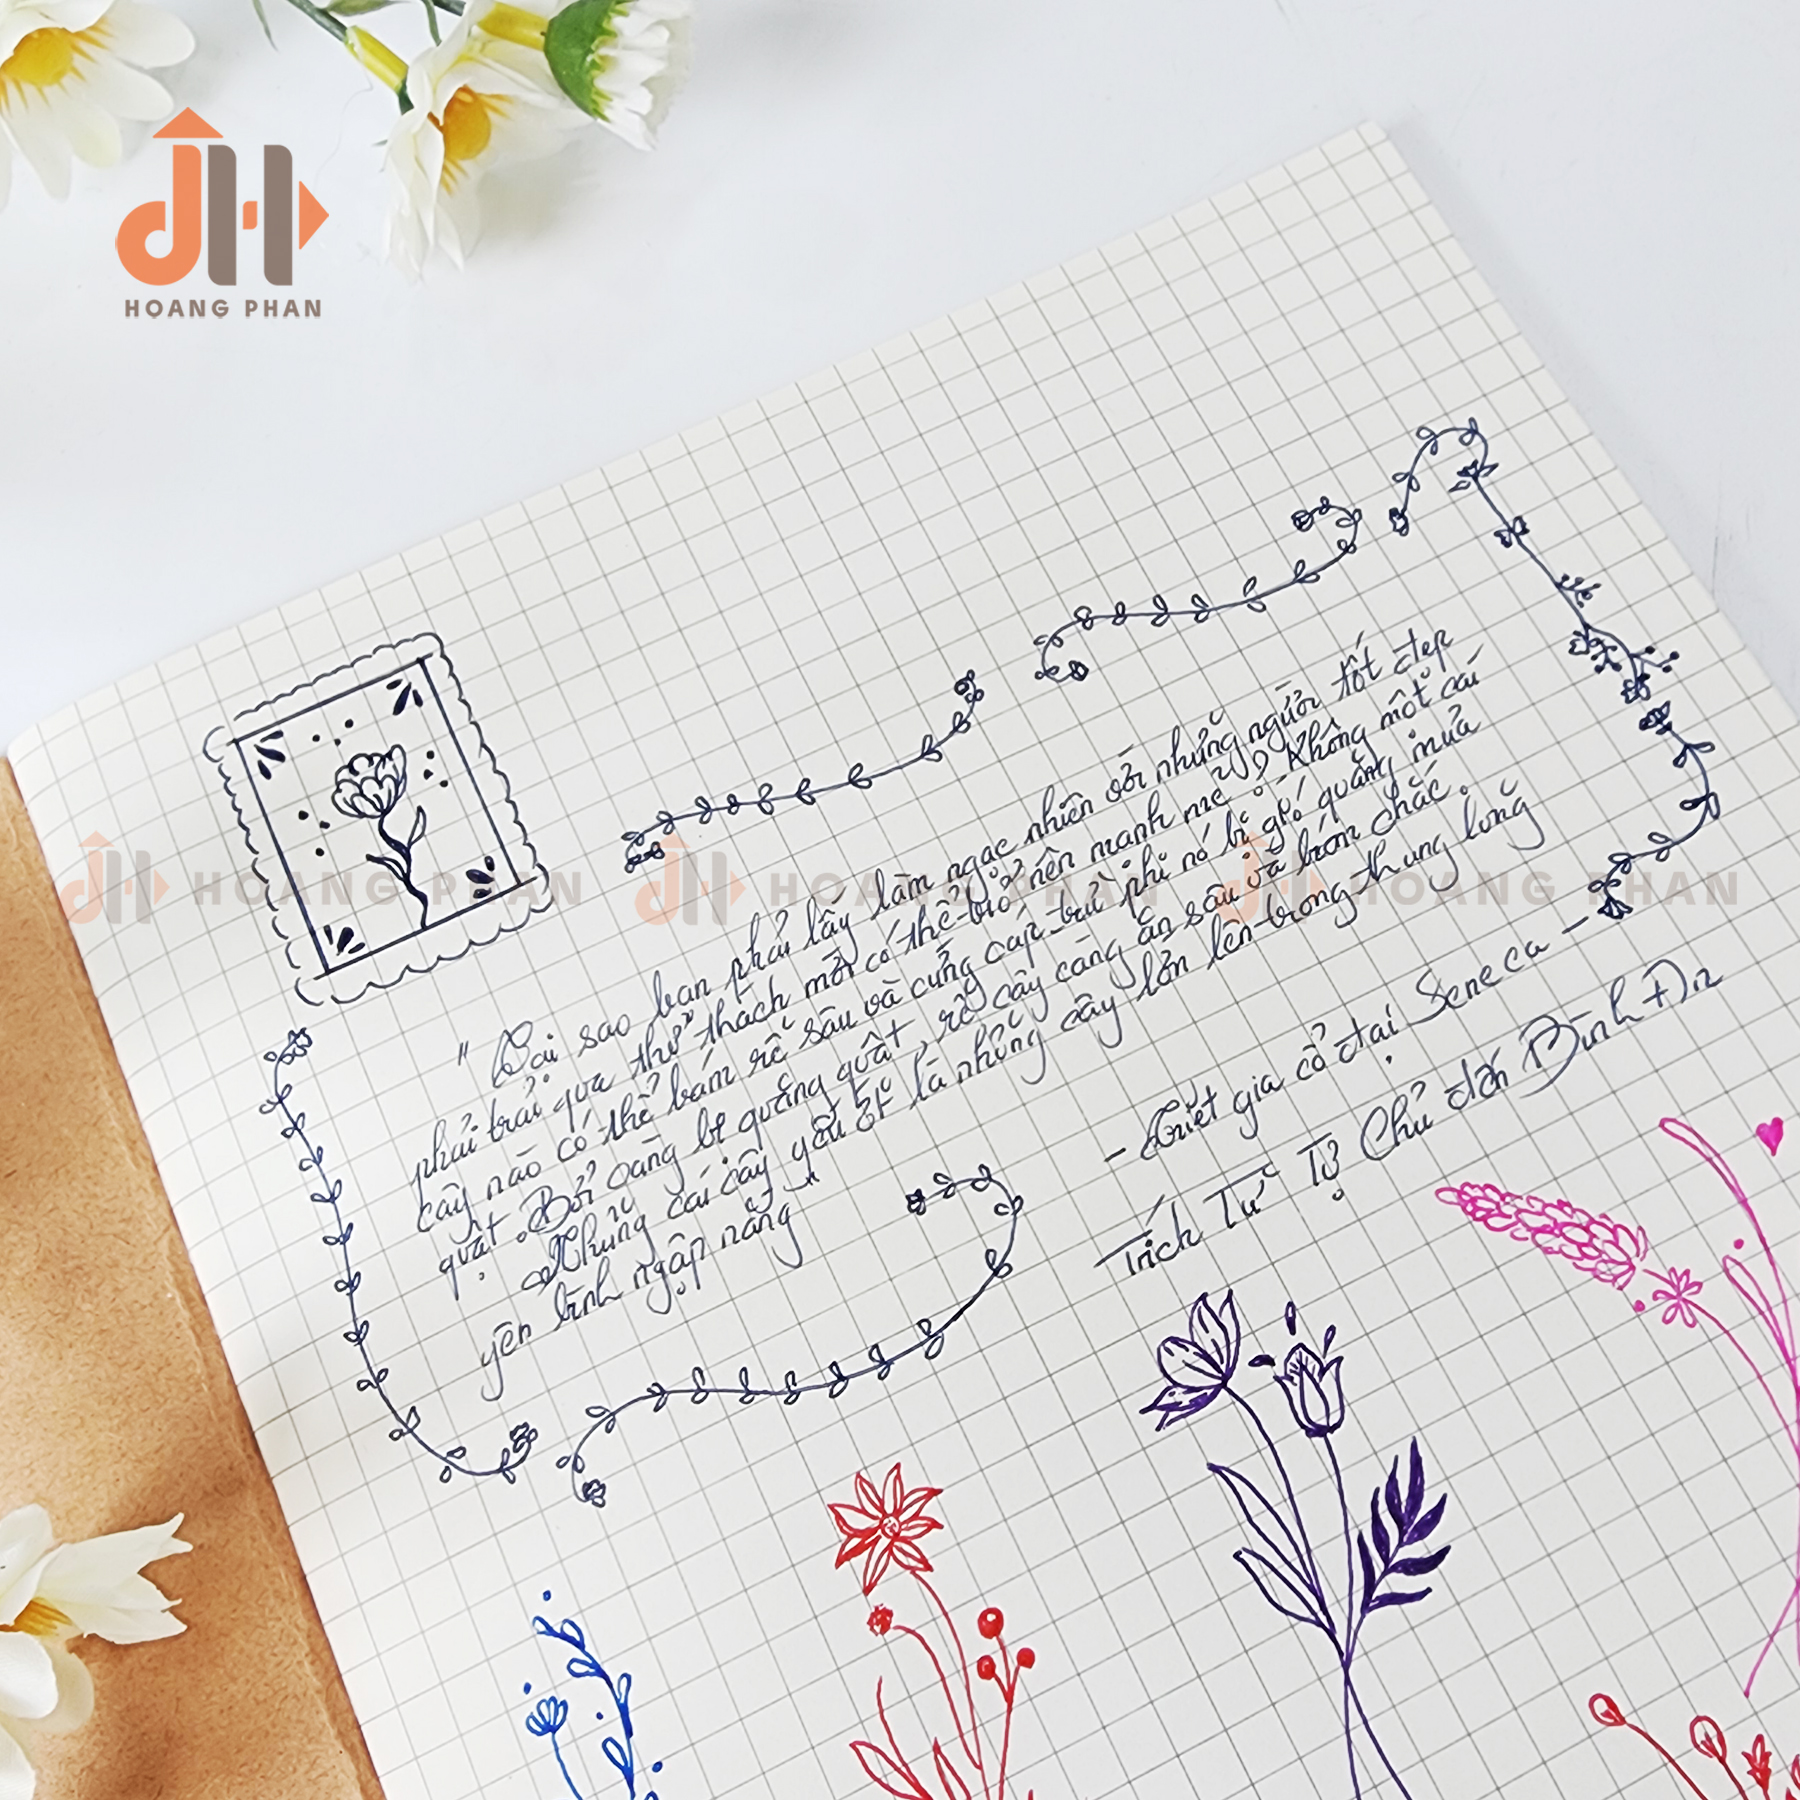 HOANG PHAN
" Tại sao bạn phải lấy làm ngạc nhiên với những người tốt đẹp
phải trải qua thử thách mới có thể trở nên mạnh mẽ? Không một cái
cây nào có thể bám rễ sâu và cứng cáp trừ phi nó bị gió quăng mưa
quật. Bởi càng bị quăng quật, rễ cây càng ăn sâu và bám chắc.
Những cái cây yếu ớt là những cây lớn lên trong thung lũng
yên bình ngập nắng"
- Triết gia cổ đại Seneca -
Trích Từ Tự Chủ đến Bình Ổn
HOANG PHAN HOANG PHAN HOANG PHAN